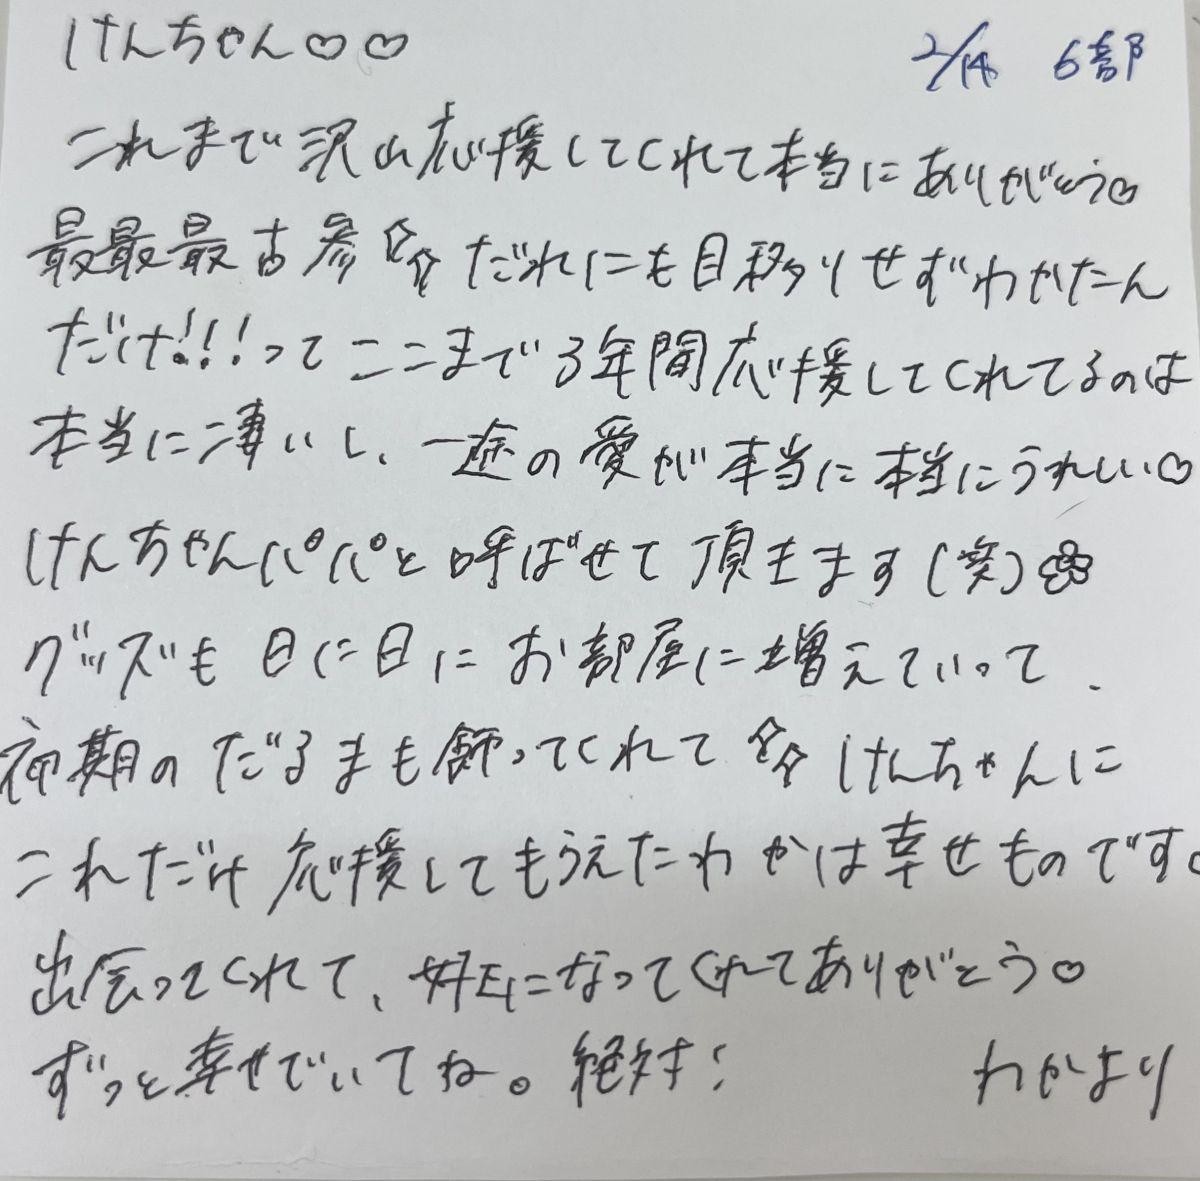 けんちゃん♡♡
2/14 6部
これまで沢山応援してくれて本当にありがとう♡
最最最古参☆☆だれにも目移りせずわかたん
だけ!!!ってここまで3年間応援してくれてるのは
本当に凄いし、一途の愛が本当に本当にうれしい♡
けんちゃんパパと呼ばせて頂きます(笑)
グッズも日に日にお部屋に増えていって、
初期のだるまも飾ってくれて☆☆けんちゃんに
これだけ応援してもらえたわかは幸せものです。
出会ってくれて、好きになってくれてありがとう♡
ずっと幸せでいてね。絶対!
わかより